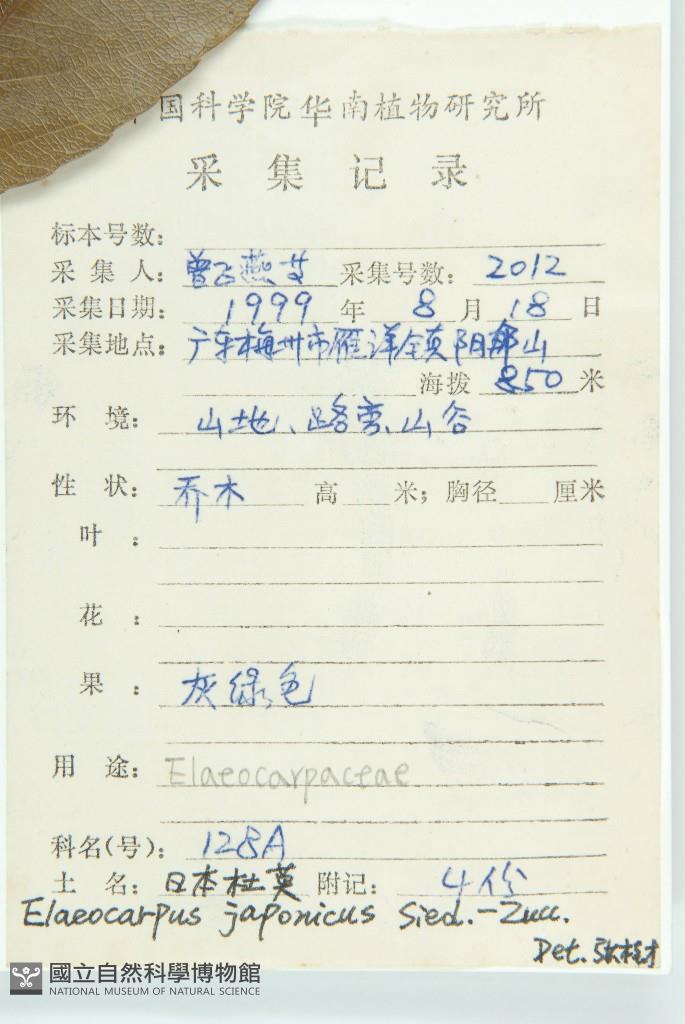 国科学院华南植物研究所
采集记录
标本号数:
采集人: 曾飞燕 采集号数: 2012
采集日期: 1999 年 8 月 18 日
采集地点: 广东梅州市雁洋镇阴那山
海拨 850 米
环境: 山地、路旁、山谷
性状: 乔木 高 米; 胸径 厘米
叶:
花:
果: 灰绿色
用途: Elaeocarpaceae
科名(号): 128A
土名: 日本杜英 附记: 4份
Elaeocarpus japonicus Sied.-Zucc.
Det.
國立自然科學博物館
NATIONAL MUSEUM OF NATURAL SCIENCE